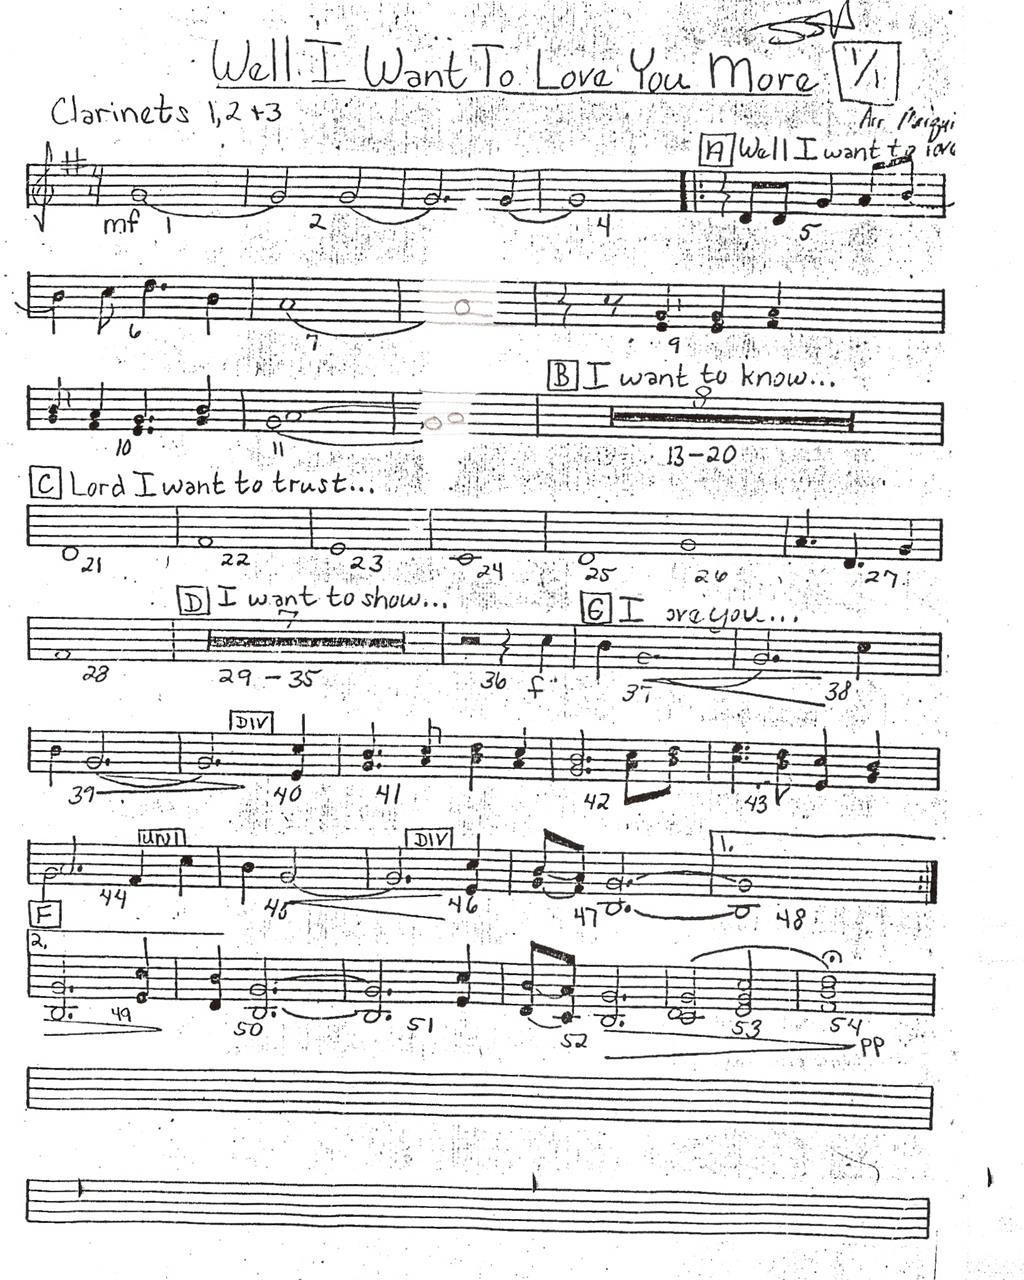 Well I Want To Love You More 1/1
Clarinets 1, 2 + 3
Arr
A Well I want to love
mf 1 2 4 5
6 7 9
B I want to know...
8
10 11 13-20
C Lord I want to trust...
21 22 23 24 25 26 27
D I want to show...
7
E I love you...
28 29-35 36 f 37 38
DIV
39 40 41 42 43
UNI DIV 1.
44 45 46 47 48
F
2.
49 50 51 52 53 54
pp